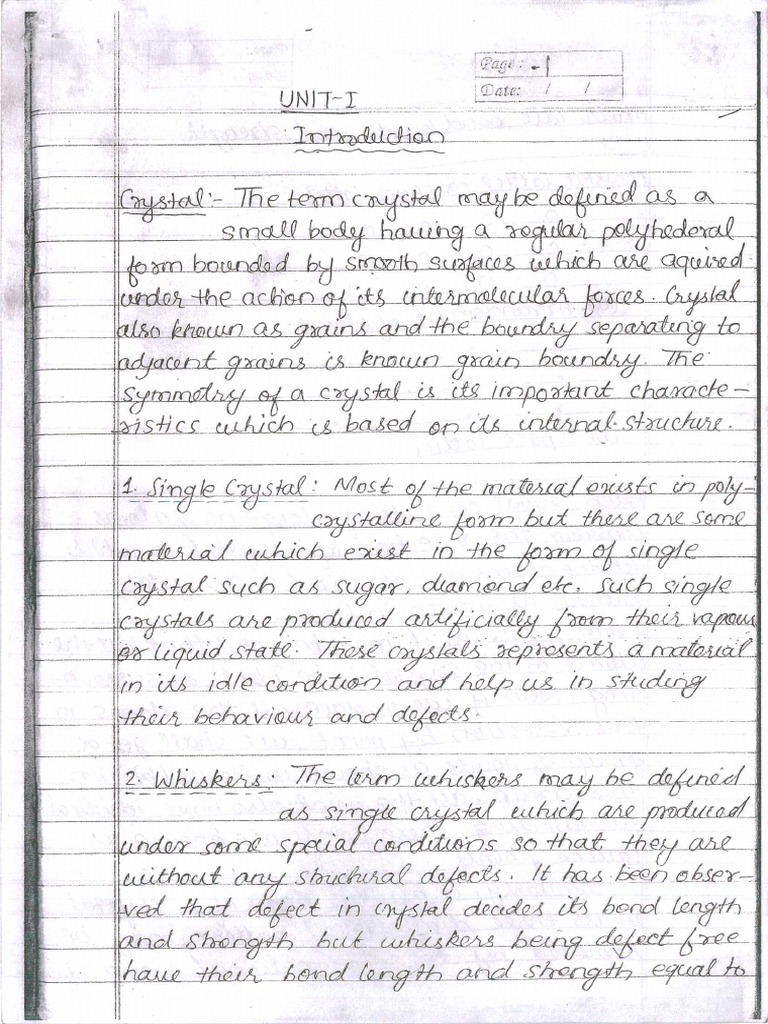 Page: -1
Date: / /
UNIT-I
Introduction
Crystal:- The term crystal may be defined as a
small body having a regular polyhederal
form bounded by smooth surfaces which are aquired
under the action of its intermolecular forces. Crystal
also known as grains and the boundry separating to
adjacent grains is known grain boundry. The
symmetry of a crystal is its important characte-
ristics which is based on its internal structure.
1. Single Crystal: Most of the material exists in poly-
crystalline form but there are some
material which exist in the form of single
crystal such as sugar, diamond etc. such single
crystals are produced artificially from their vapour
or liquid state. These crystals represents a material
in its idle condition and help us in studing
their behaviour and defects.
2. Whiskers: The term whiskers may be defined
as single crystal which are produced
under some special conditions so that they are
without any structural defects. It has been obser-
ved that defect in crystal decides its bond length
and strength but whiskers being defect free
have their bond length and strength equal to